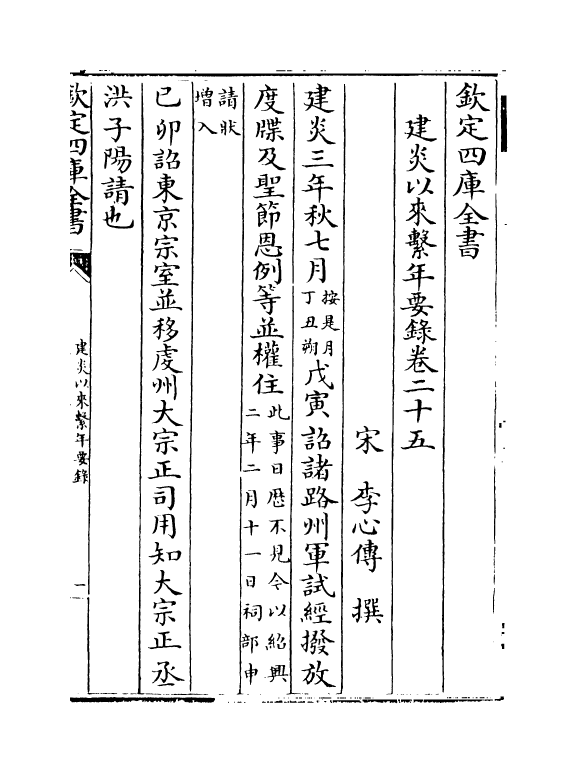 欽定四庫全書
建炎以來繫年要錄卷二十五
宋 李心傳 撰
建炎三年秋七月按是月丁丑朔戊寅詔諸路州軍試經撥放
度牒及聖節恩例等並權住此事日歴不見今以紹興二年二月十一日祠部申
請狀增入
己卯詔東京宗室並移虔州大宗正司用知大宗正丞
洪子陽請也
欽定四庫全書
建炎以來繫年要錄